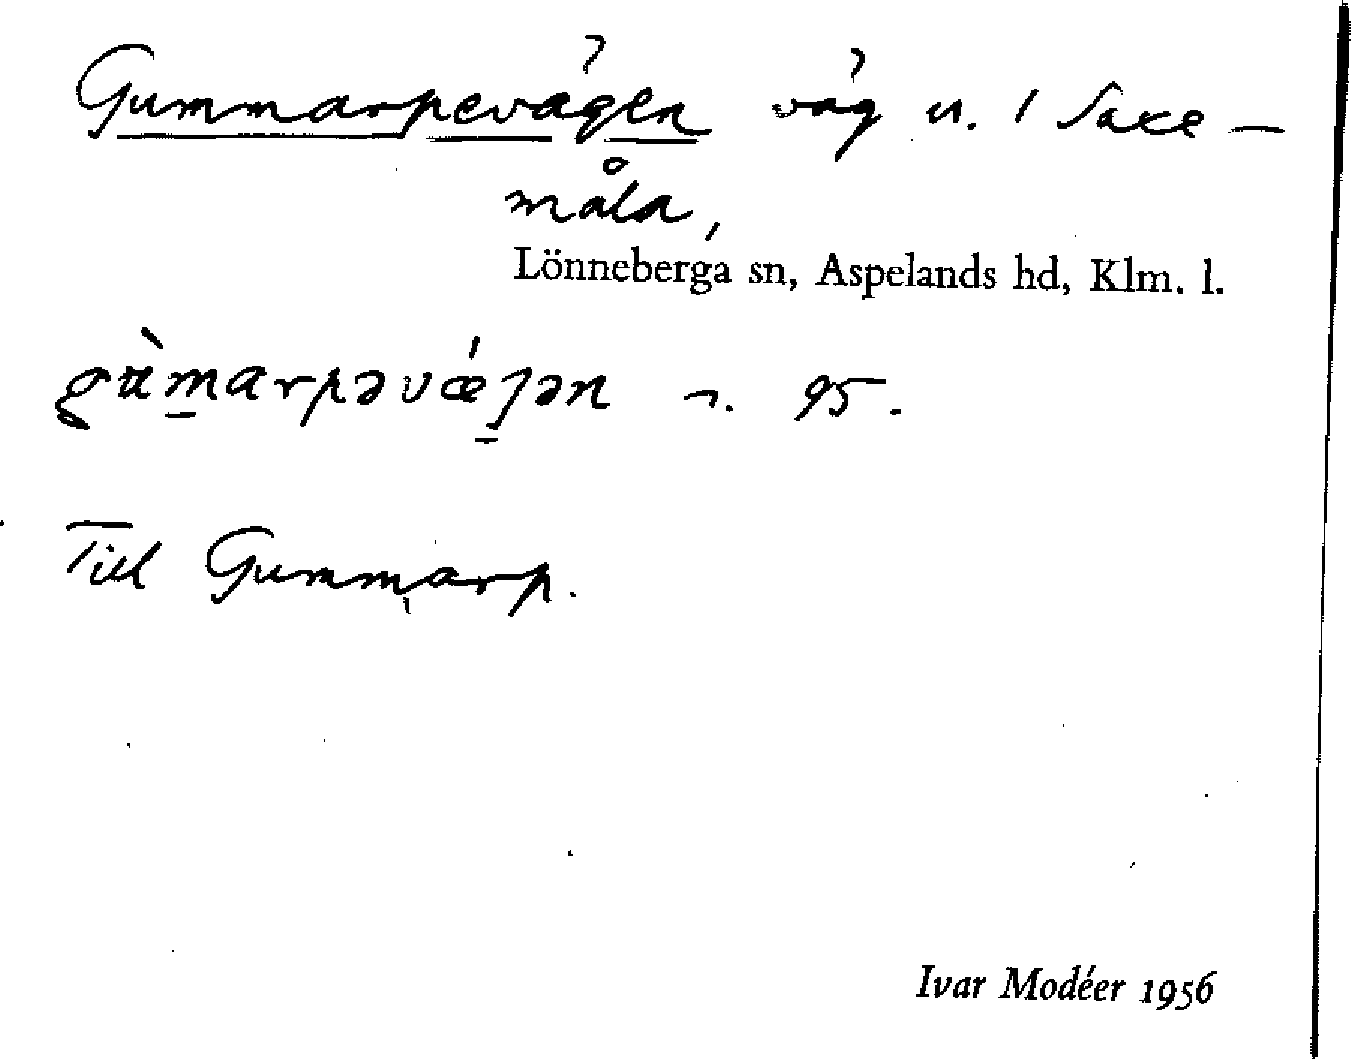 Gummarpevägen väg n. 1 Saxe–
måla,
Lönneberga sn, Aspelands hd, Klm. l.
gù̈marpəvǽȷən n. 95.
Till Gummarp.
Ivar Modéer 1956